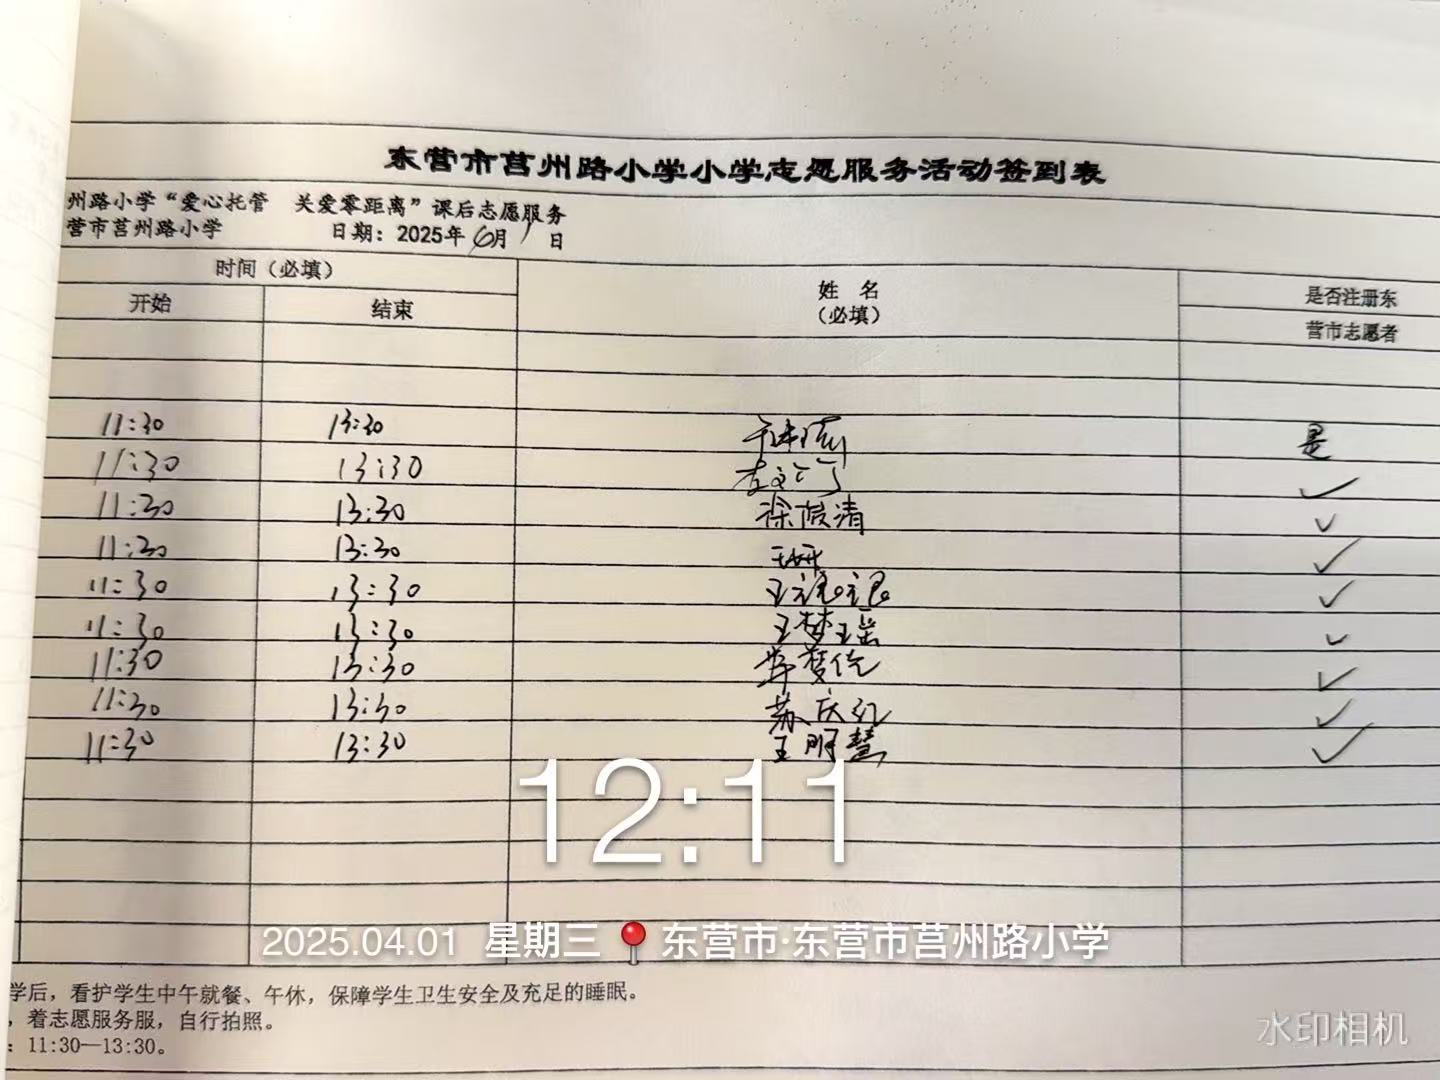 东营市莒州路小学小学志愿服务活动签到表
州路小学“爱心托管 关爱零距离”课后志愿服务
营市莒州路小学 日期：2025年6月1日
时间（必填） 姓 名 是否注册东
开始 结束 （必填） 营市志愿者
11:30 13:30 是
11:30 13:30 ✓
11:30 13:30 徐 清 ✓
11:30 13:30 王妍 ✓
11:30 13:30 王 ✓
11:30 13:30 王梦瑶 ✓
11:30 13:30 梦 ✓
11:30 13:30 苏庆红 ✓
11:30 13:30 王明慧 ✓
12:11
2025.04.01 星期三 东营市·东营市莒州路小学
学后，看护学生中午就餐、午休，保障学生卫生安全及充足的睡眠。
，着志愿服务服，自行拍照。
：11:30—13:30。
水印相机